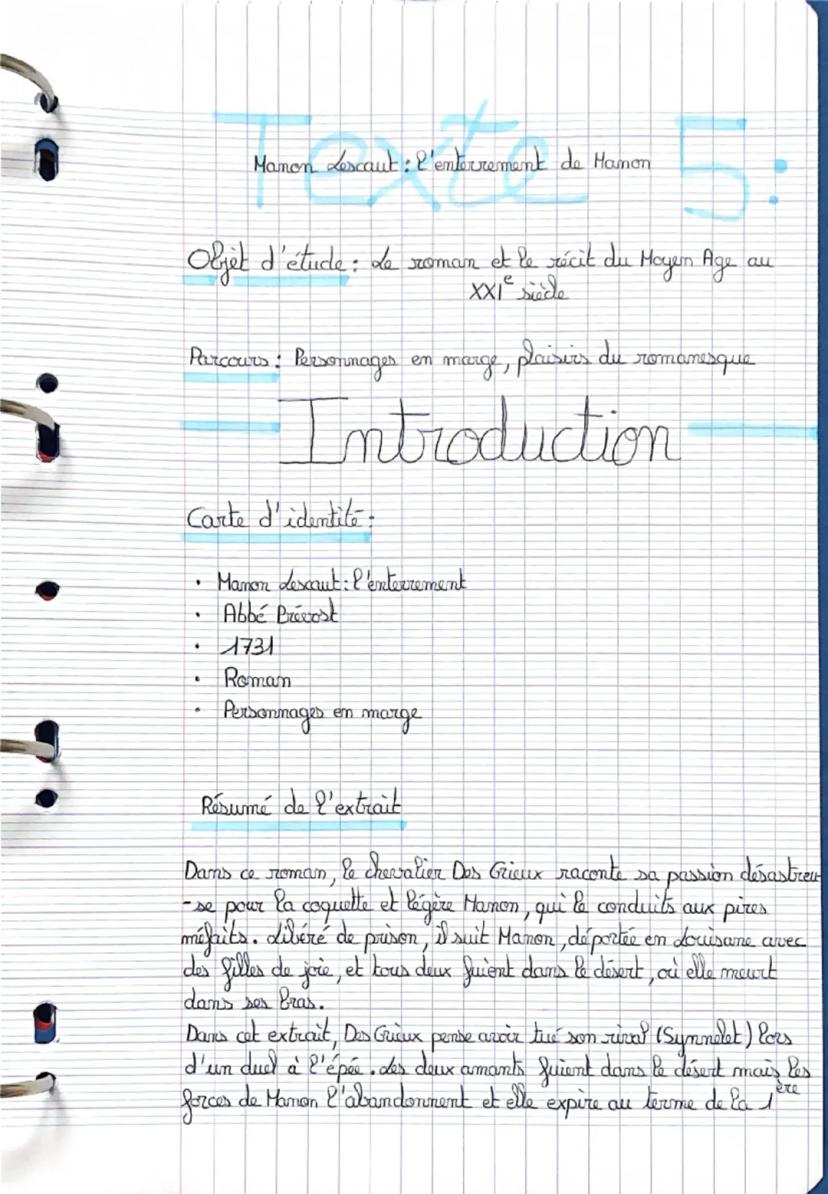 Texte 5:
Manon Lescaut : l'enterrement de Manon
Objet d'étude : Le roman et le récit du Moyen Age au
XXIe siècle
Parcours : Personnages en marge, plaisirs du romanesque
Introduction
Carte d'identité :
• Manon Lescaut : l'enterrement
• Abbé Prévost
• 1731
• Roman
• Personnages en marge
Résumé de l'extrait
Dans ce roman, le chevalier Des Grieux raconte sa passion désastreu
-se pour la coquette et légère Manon, qui le conduits aux pires
méfaits. Libéré de prison, il suit Manon, déportée en Louisane avec
des filles de joie, et tous deux fuient dans le désert, où elle meurt
dans ses bras.
Dans cet extrait, Des Grieux pense avoir tué son rival (Synnelet) lors
d'un duel à l'épée. Les deux amants fuient dans le désert mais les
forces de Manon l'abandonnent et elle expire au terme de la 1ère